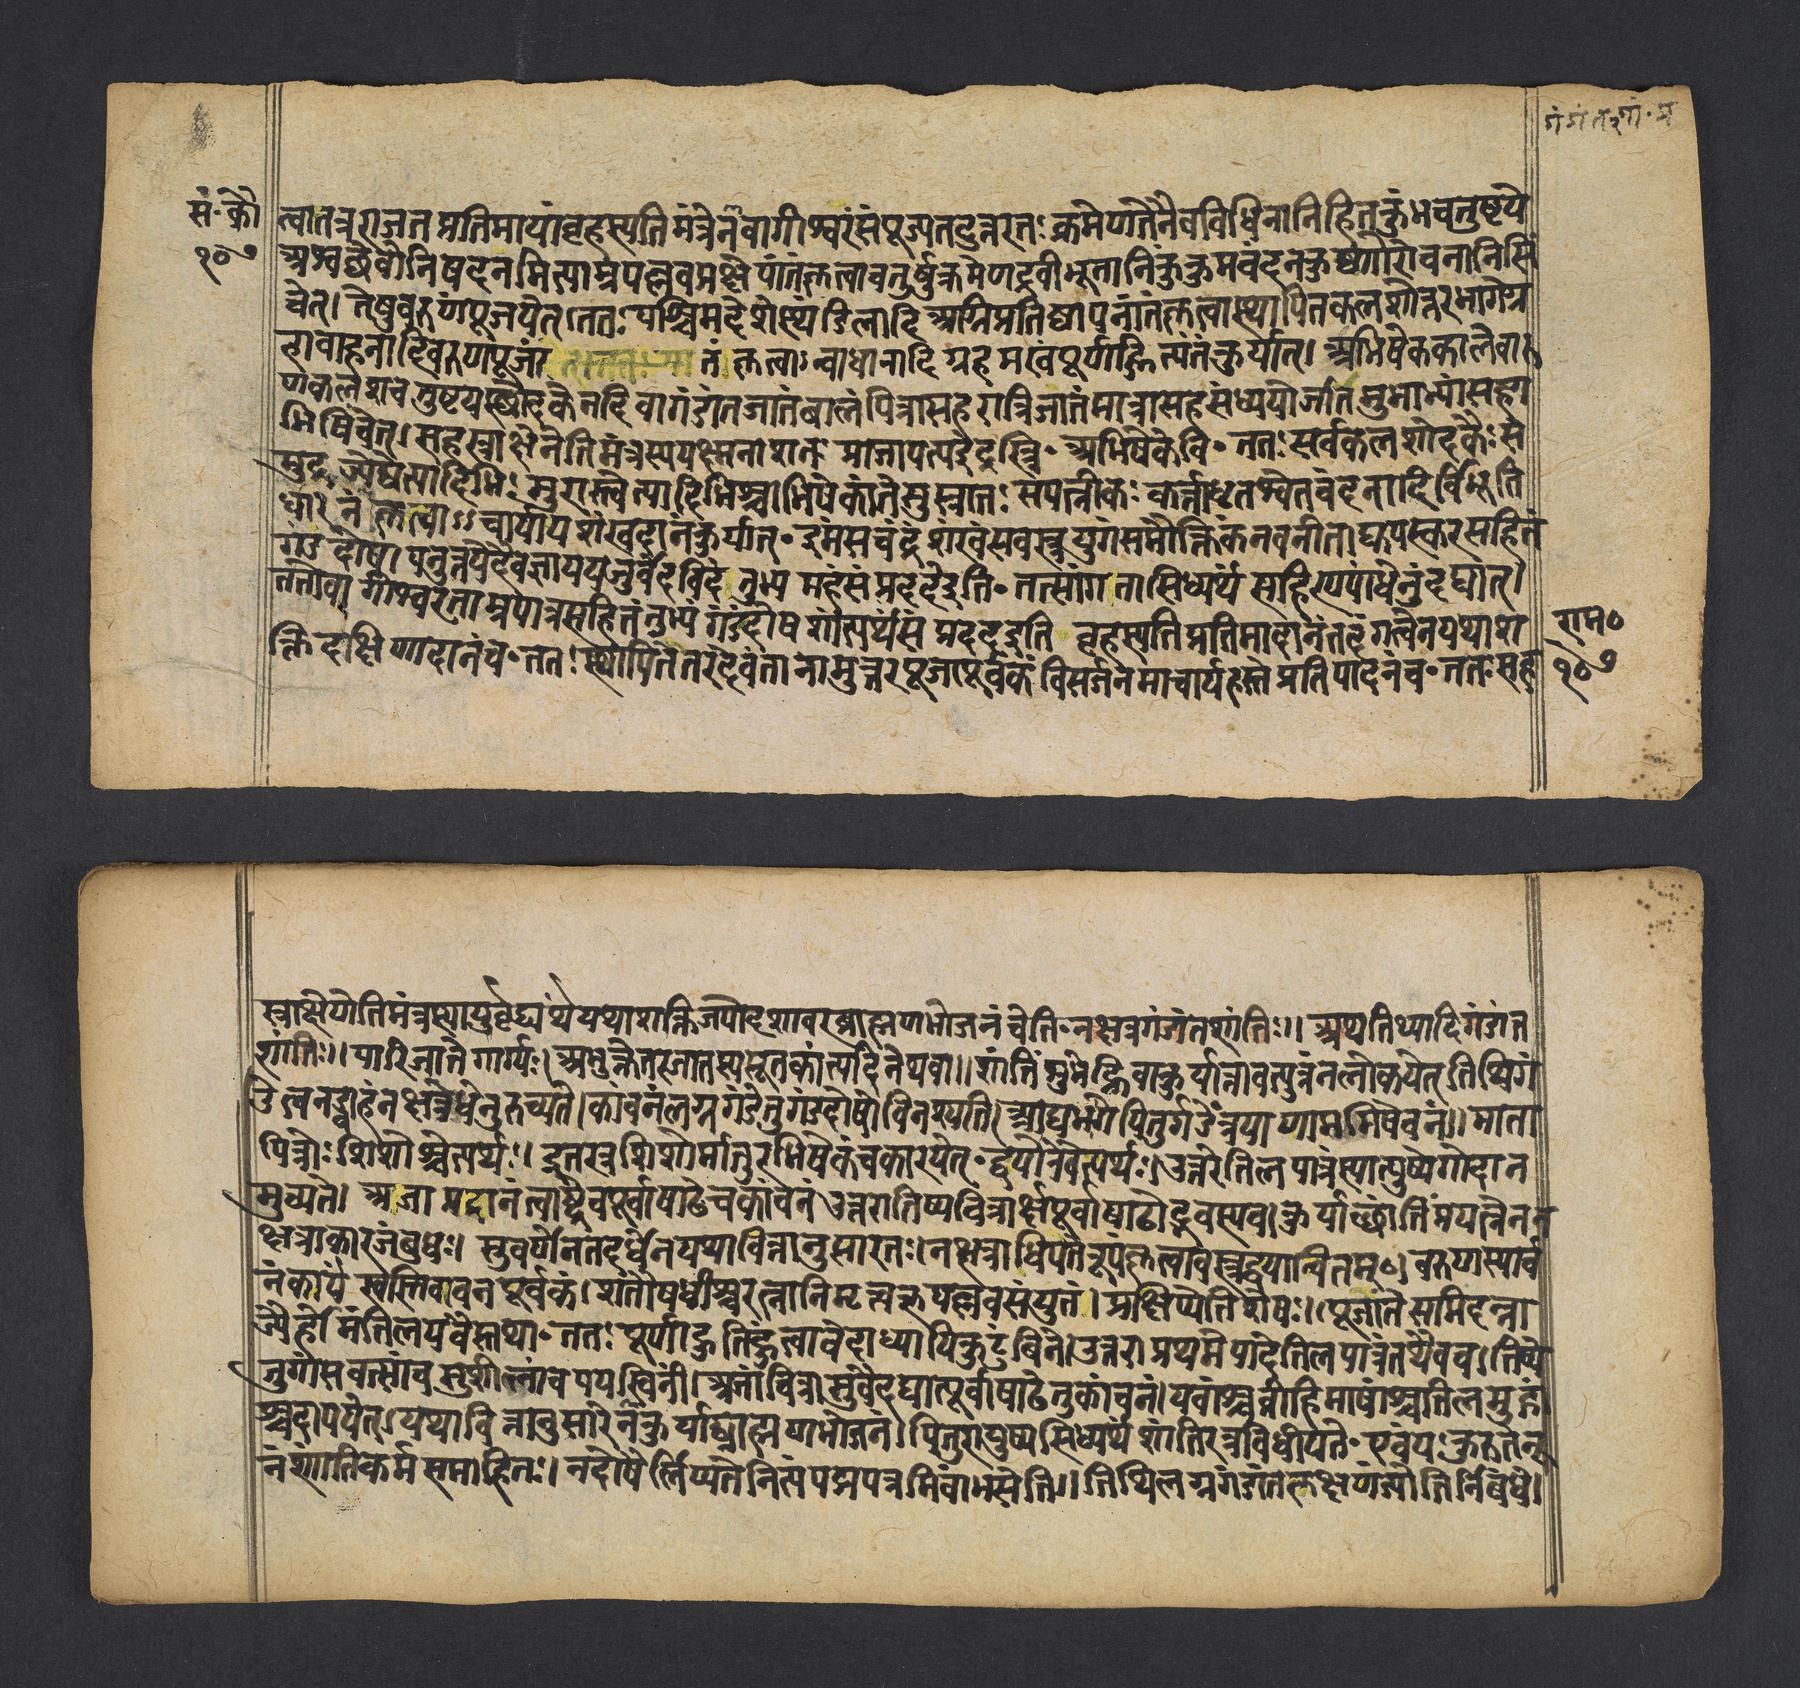 गं गं त र शां॰ प्र
सं॰ कौ
१०७
त्वातत्रराजतप्रतिमायांबृहस्पतिमंत्रेनवागीश्वरंसंपूज्यतदुत्तरतः क्रमेणतेनैवविधिनानिहितकुंभचतुष्टये
अश्वत्थेवोनिषदनमित्याम्रपल्लवप्रक्षेपांतंकृत्वाचतुर्षुक्रमेणद्रवीभूतानिकुंकुमचंदनकुष्ठगोरोचनानिसिं
चेत्। तेषुवरुणंपूजयेत्ततःपश्चिमदेशेस्थंडिलादि अग्निप्रतिष्ठापनांतंकृत्वास्थापितकलशोत्तरभागेग्र
हावाहनादिवरुणपूजां तंकृत्वाऽन्वाधानादिग्रहमखंपूर्णाहुत्यंतंकुर्यात्। अभिषेककालेवारु
णकलशचतुष्टयस्थोदकेनदिवागंडांतजातंबालंपित्रासहरात्रिजातंमात्रासहसंध्ययोर्जातमुभाभ्यांसहा
भिषिंचेत्। सहस्राक्षेनेतिमंत्रस्ययक्ष्मनाशनः प्राजापत्यइंद्रस्त्रि॰ अभिषेकेवि॰ ततः सर्वकलशोदकैः स
मुद्रज्येष्ठेत्यादिभिः सुरास्त्वेत्यादिभिश्चाभिषेकांतेसुस्नातः सपत्नीकः कर्त्ताधृतश्वेतचंदनादिर्विभूति
धारनंकृत्वाऽऽचार्यायशंखदानंकुर्यात्॰ इमंसचंद्रंशंखंसवस्त्रयुगंसमौक्तिकंनवनीताद्युपस्करसहितं
गंडदोषापनुत्तयेदैवज्ञाययजुर्वेदविदेतुभ्यमहंसंप्रददेइति॰ तत्सांगतासिध्यर्थंसहिरण्यांधेनुंदद्यात्।
ततोवागीश्वरताम्रपात्रसहितंतुभ्यंगंडदोषशांत्यर्थंसंप्रददइति बृहस्पतिप्रतिमादानंतदंगत्वेनयथाश
क्तिदक्षिणादानंच॰ ततःस्थापितेतरदेवतानामुत्तरपूजापूर्वकंविसर्जनमाचार्यहस्तेप्रतिपादनंच॰ ततःसह
राम०
१०७
स्राक्षेणेतिमंत्रस्यायुर्वृद्ध्यर्थंयथाशक्तिजपोदशावरब्राह्मणभोजनंचेति॰ नक्षत्रगंडांतशांतिः॥ अथतिथ्यादिगंडांत
शांतिः॥ पारिजातेगार्ग्यः। अथुक्तेतरजातस्यसूतकांत्यदिनेथवा॥ शांतिंशुभेह्निवाकुर्यात्तावत्पुत्रंनलोकयेत् तिथिगं
डेत्वनड्वाहंनक्षत्रेधेनुरुच्यते। कांचनंलग्नगंडेतुगंडदोषोविनश्यति। आद्यभागेपितुर्गंडेत्रयाणामभिषेचनं॥ माता
पित्रोः शिशोश्चेत्यर्थः॥ इतरत्रशिशोर्मातुरभिषेकंचकारयेत्॰ द्वयोरेवेत्यर्थः॥ उत्तरेतिलपात्रंस्यात्पुष्येगोदान
मुच्यते। अजाप्रदानंत्वाष्ट्रेचपूर्वाषाढेचकांचनं उत्तरातिष्यचित्रार्क्षपूर्वाषाढोद्भवस्यच। कुर्याच्छांतिंप्रयत्नेनन
क्षत्राकारजंबुधः। सुवर्णेनतदर्धेनयथावित्तानुसारतः। नक्षत्राधिपतेरूपंकृत्वावस्त्रद्वयान्वितम्०। बरुणस्यार्च
नंकार्यंस्वस्तिवाचनपूर्वकं। शतौषधीश्चरत्नानिमृत्त्वक्पल्लवसंयुतं। प्रक्षिप्येतिशेषः। पूजांतेसमिदन्ना
ज्यैर्होमंतिलयवैस्तथा॰ ततः पूर्णाहुतिंहुत्वावेदाध्यायिकुटुंबिने। उत्तराप्रथमेपादेतिलपात्रंतथैवच। तिष्ये
तुगांसवत्सांचसुशीलांचपयस्विनीं। अजांचित्रासुवैदद्यात्पूर्वाषाढेतुकांचनं। यवांश्चव्रीहिमाषांश्चतिलमुद्गां
श्चदापयेत्। यथावित्तानुसारेनकुर्याद्ब्राह्मणभोजनं। पितुरायुष्यसिध्यर्थंशांतिरत्रविधीयते॰ एवंयः कुरुतेनू
नंशांतिकर्मसमाहितः। नदोषैर्लिप्यतेनित्यंपद्मपत्रमिवांभसेति॥ तिथिलग्नगंडांतलक्षणंज्योतिर्निबंधे।